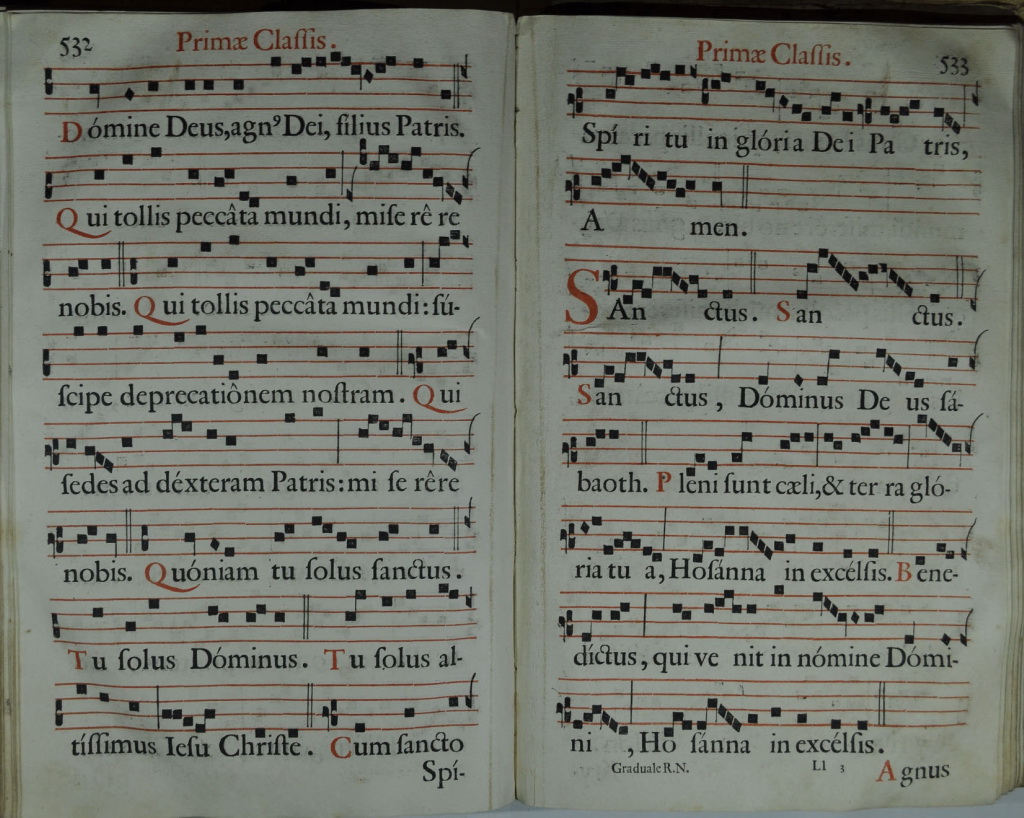 532 Primæ Claſſis.
Dómine Deus,agnꝰDei, filius Patris.
Qui tollis peccâta mundi, miſe rê re
nobis. Qui tollis peccâta mundi: ſú-
ſcipe deprecatiônem noſtram. Qui
ſedes ad déxteram Patris: mi ſe rêre
nobis. Quóniam tu ſolus ſanctus.
Tu ſolus Dóminus. Tu ſolus al-
tíſſimus Ieſu Chriſte. Cum ſancto
Spí-
Primæ Claſſis. 533
Spí ri tu in glória De i Pa tris,
A men.
SAn ctus. San ctus.
San ctus, Dóminus De us ſá-
baoth. Pleni ſunt cæli,& ter ra gló-
ria tu a, Hoſánna in excélſis. Bene-
díctus, qui ve nit in nómine Dómi-
ni , Ho ſánna in excélſis.
Graduale R.N. Ll 3 Agnus